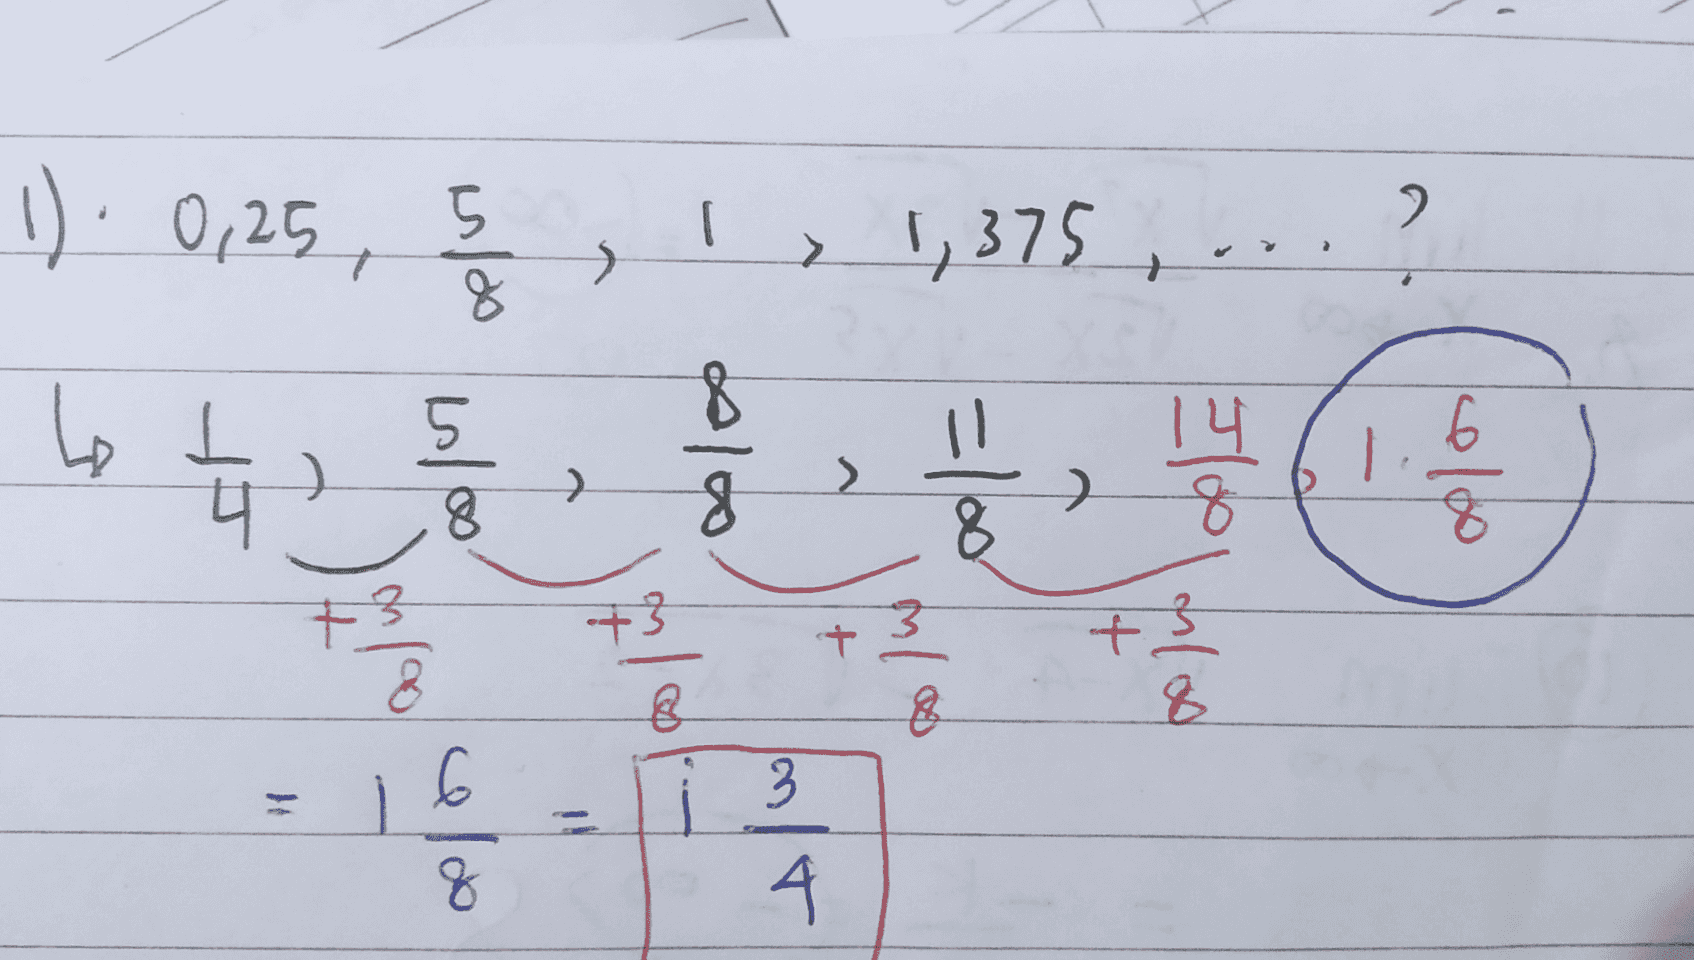 1). 0,25, 5/8, 1, 1,375, ....?
↳ 1/4, 5/8, 8/8, 11/8, 14/8, 1 6/8
+3/8 +3/8 +3/8 +3/8
= 1 6/8 = 1 3/4